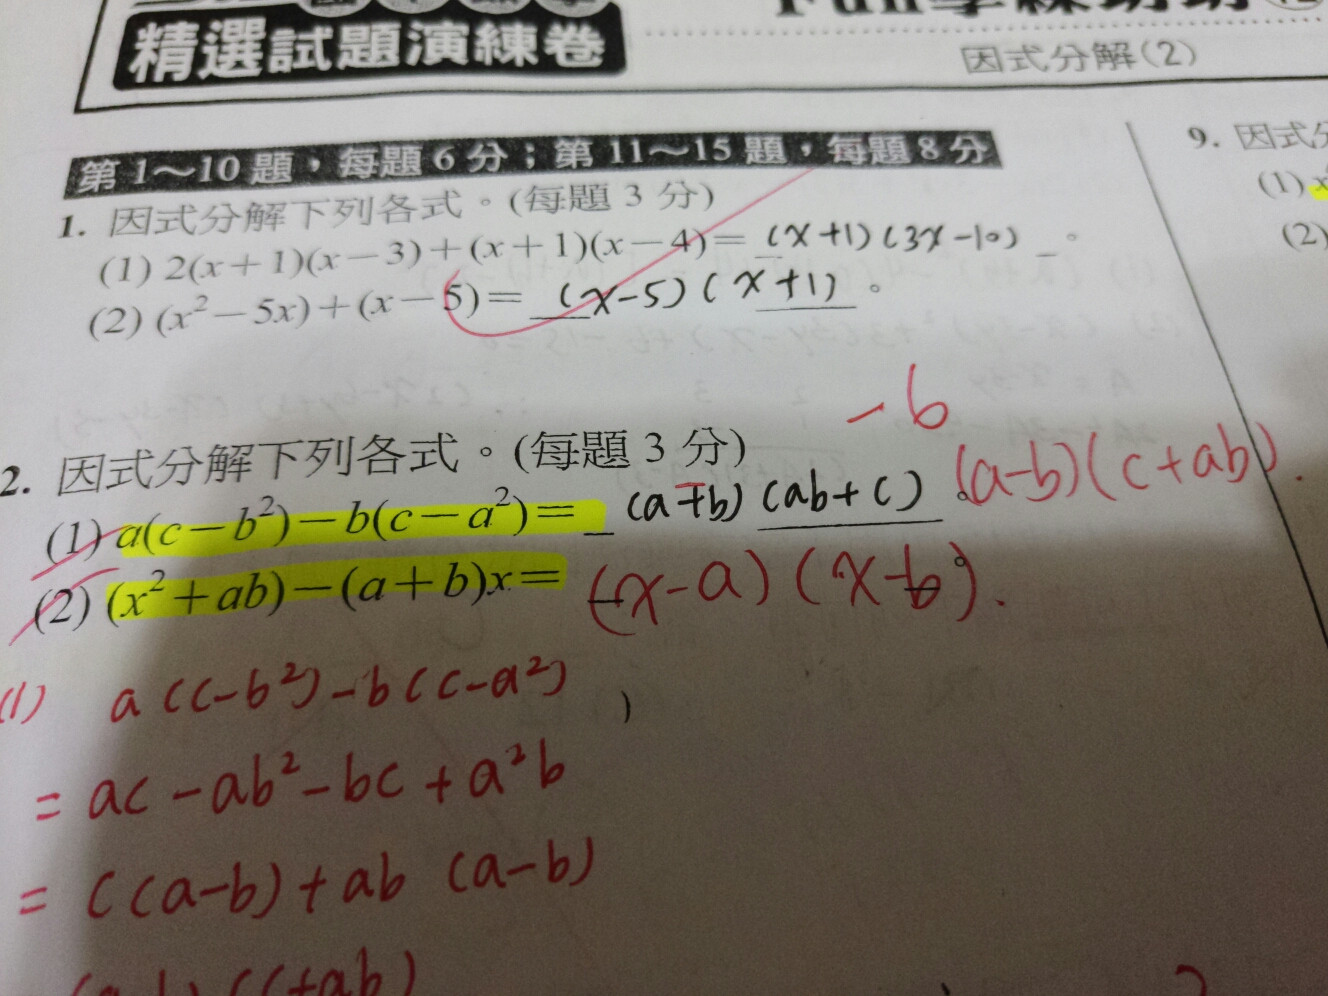 精選試題演練卷
因式分解(2)
第1～10題，每題6分；第11～15題，每題8分
1. 因式分解下列各式。(每題3分)
(1) 2(x+1)(x−3)+(x+1)(x−4)= (x+1)(3x-10)。
(2) (x²−5x)+(x−5)= (x-5)(x+1)。
-b
2. 因式分解下列各式。(每題3分)
(1) a(c−b²)−b(c−a²)= (a+b)(ab+c)。(a-b)(c+ab).
(2) (x²+ab)−(a+b)x= (x-a)(x-b)。.
(1) a(c-b²)-b(c-a²)
= ac-ab²-bc+a²b
= c(a-b)+ab(a-b)
(c+ab)
9. 因式
(1) x
(2)